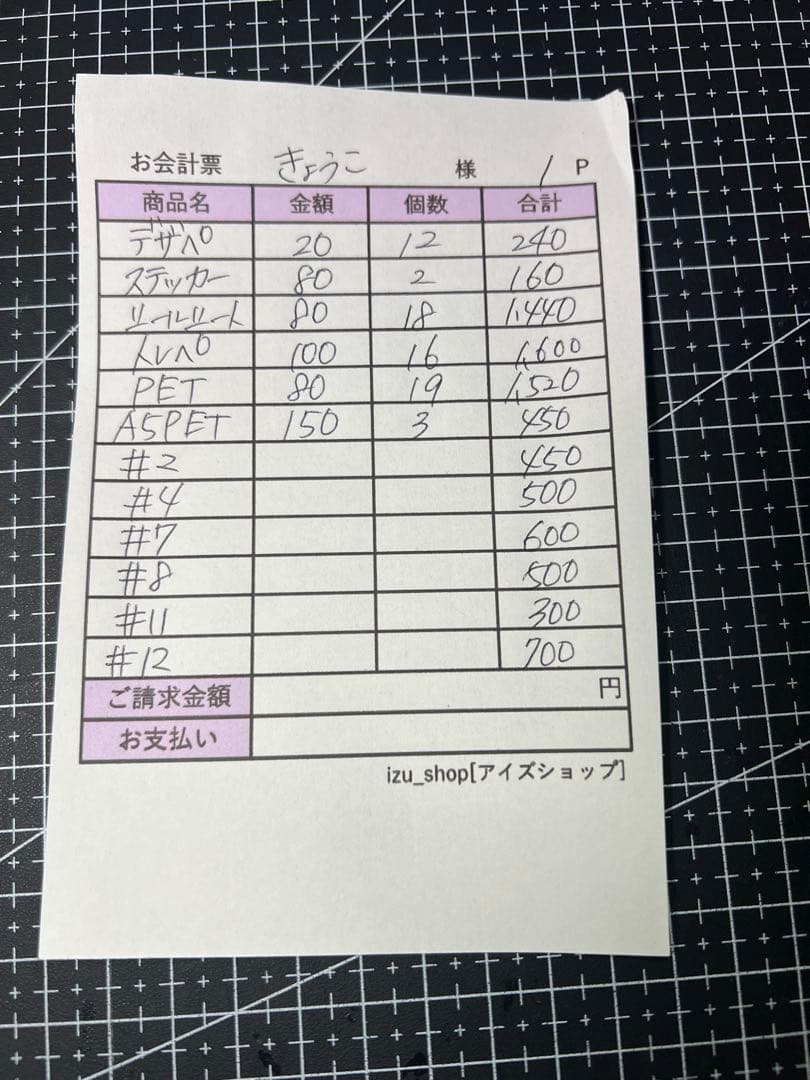 お会計票 きょうこ 様 1 P
商品名 金額 個数 合計
デザペ 20 12 240
ステッカー 80 2 160
80 18 1,440
トレペ 100 16 1,600
PET 80 19 1,520
A5PET 150 3 450
#2 450
#4 500
#7 600
#8 500
#11 300
#12 700
ご請求金額 円
お支払い
izu_shop[アイズショップ]